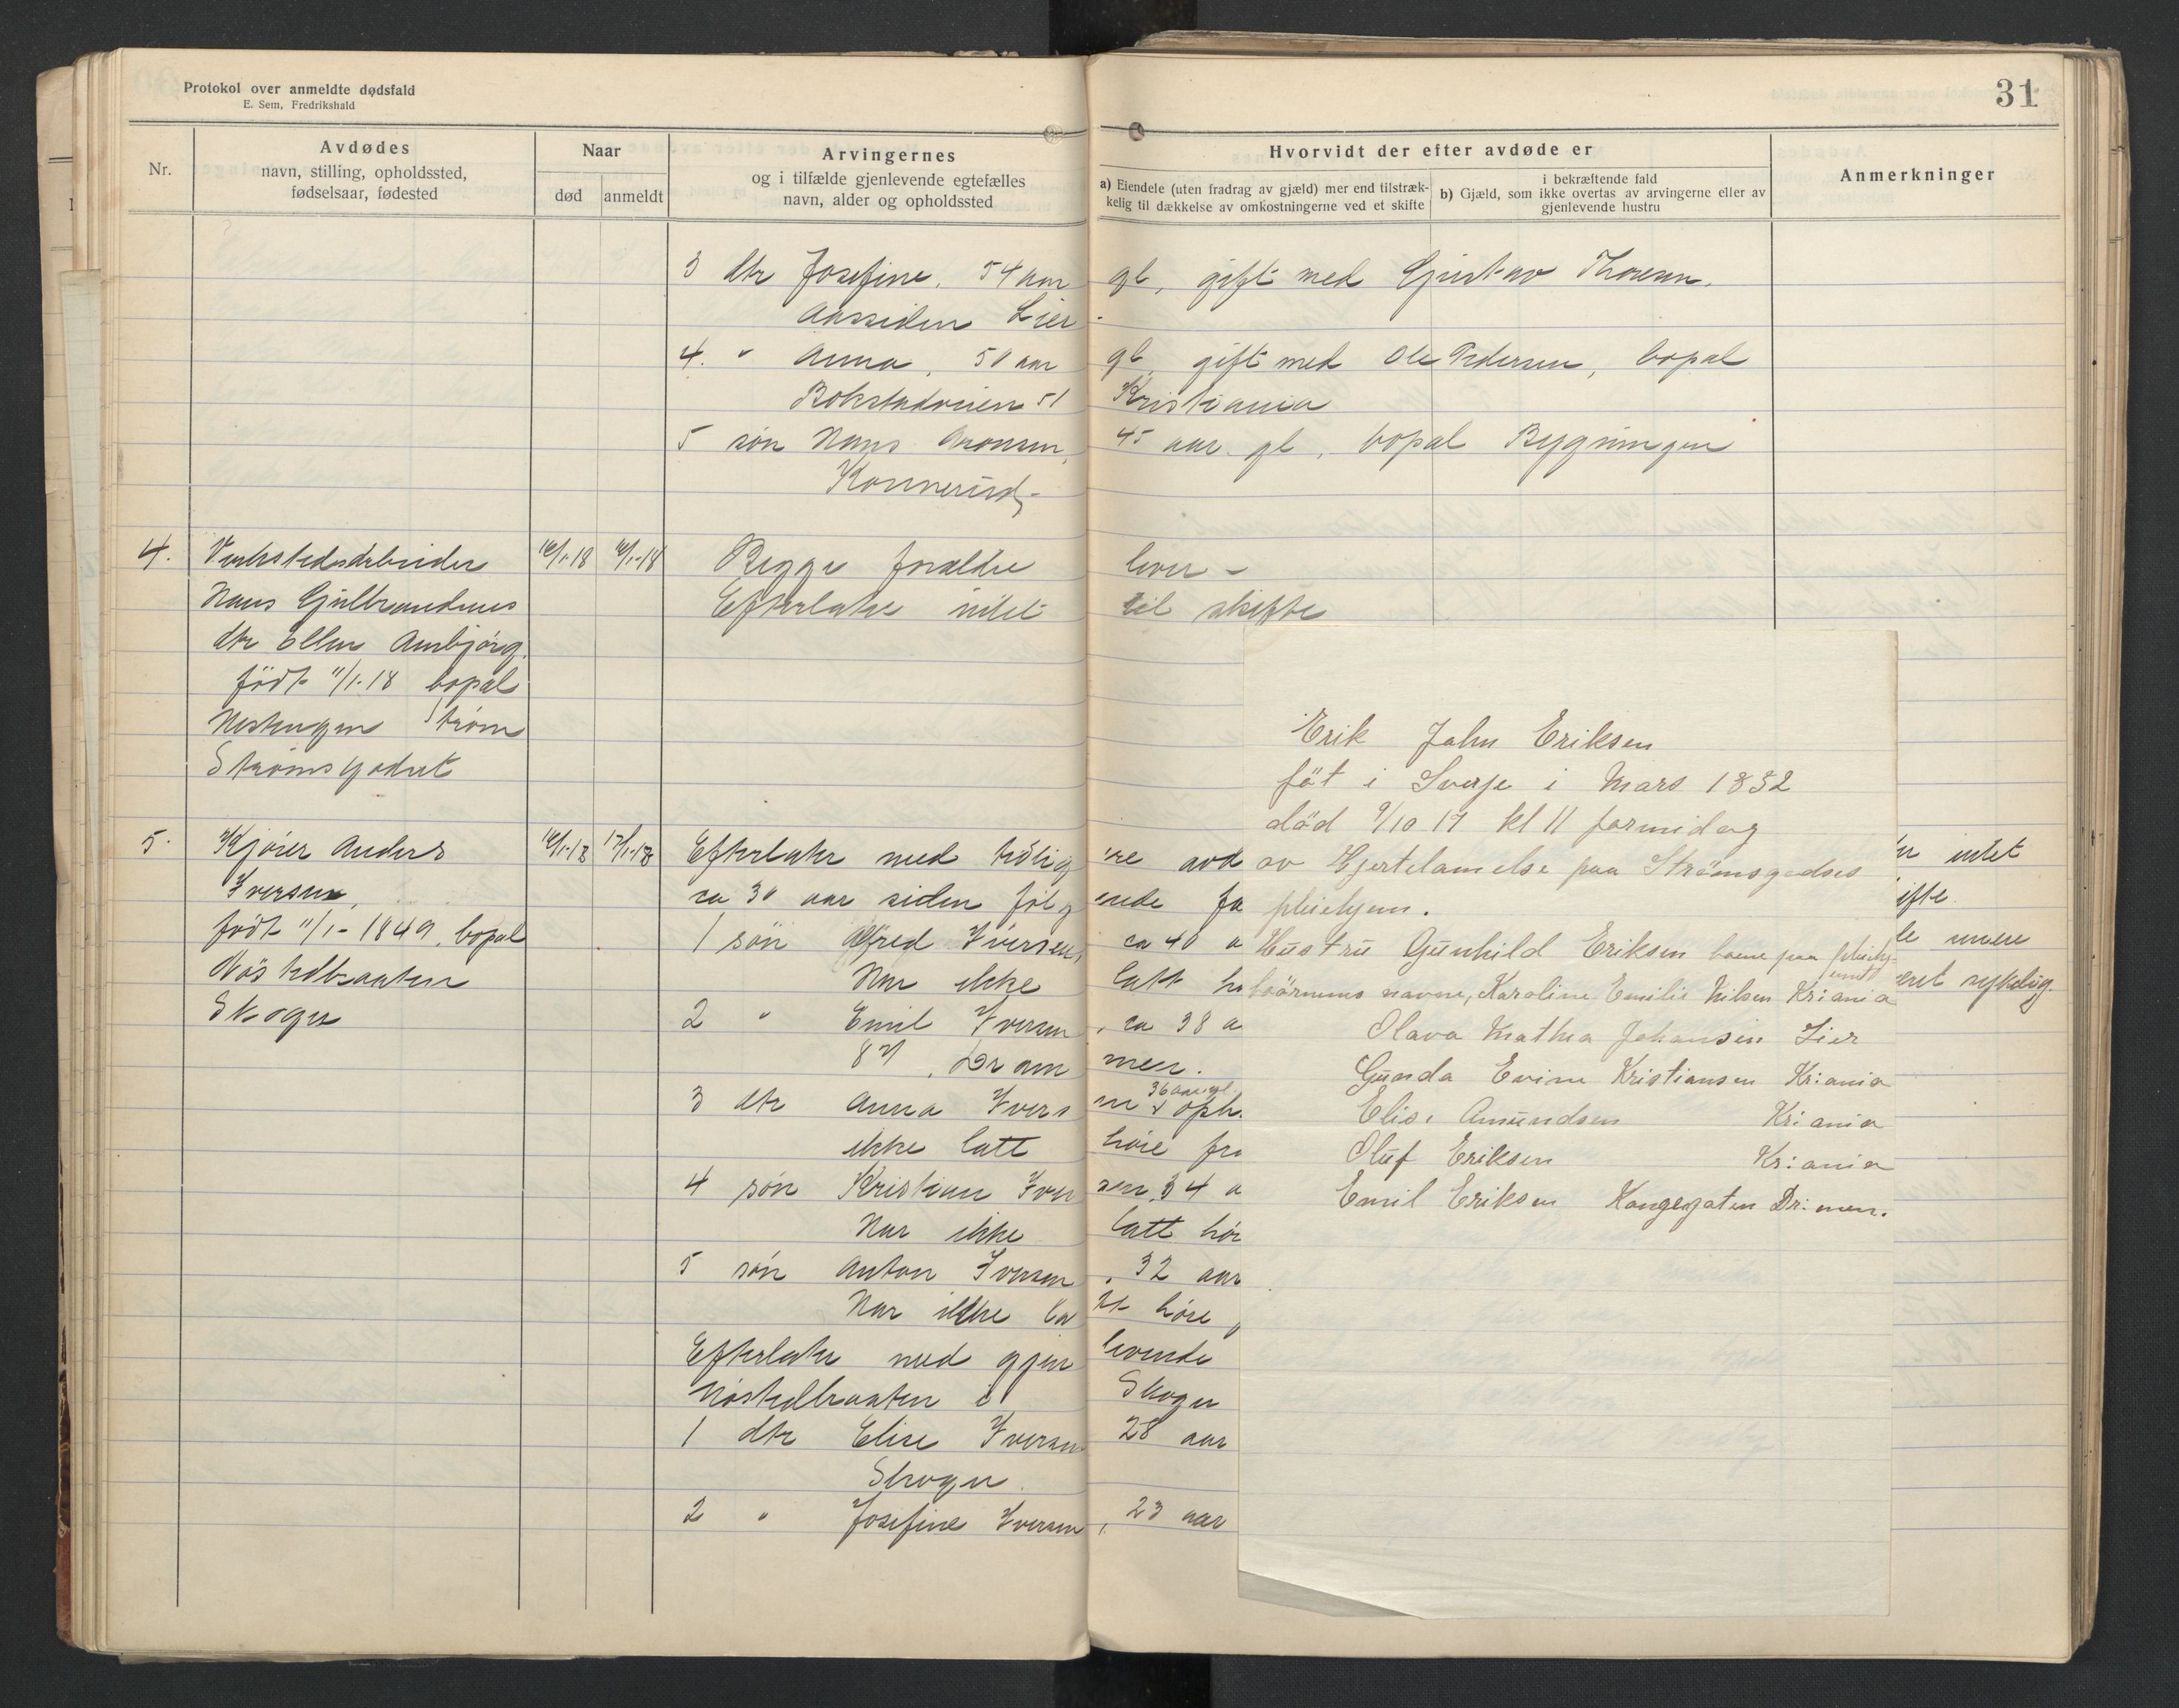 Protokol over anmeldte dødsfald
E. Sem, Fredrikshald
31
Nr.
Avdødes
navn, stilling, opholdssted,
fødselsaar, fødested
Naar
død anmeldt
Arvingernes
og i tilfælde gjenlevende egtefælles
navn, alder og opholdssted
Hvorvidt der efter avdøde er
a) Eiendele (uten fradrag av gjæld) mer end tilstræk-
kelig til dækkelse av omkostningerne ved et skifte
i bekræftende fald
b) Gjæld, som ikke overtas av arvingerne eller av
gjenlevende hustru
Anmerkninger
3 dtr Josefine, 54 aar gl, gift med Gustav Thoresen,
Aassiden Lier.
4. " Anna, 50 aar gl, gift med Ole Pedersen, bopal
Bokstadveien 51 Kristiania
5 søn Hans Aronsen, 45 aar gl, bopal Bygningen
Konnerud
4. Verkstedsarbeider 16/1-18 Begge forældre lever -
Hans Gulbrandsens Efterlater intet til skifte
dtr Ellen Annbjørg,
født 11/1-18 bopal
Nestengen Strøm
Strømsgodset
5. Kjører Anders 17/1-18 Efterlater med tidlig ere avd
Iversen, ca 30 aar siden følg ende fa
født 11/1-1849, bopal 1 søn Alfred Iversen, ca 40 a
Nøstedbraaten Har ikke latt hø
Skoger 2 " Emil Iversen, ca 38 a
Drammen.
3 dtr Anna Iversen 36 aar gl. oph.
ikke latt høre fra
4 søn Kristian Iversen, 34 a
Har ikke latt hør
5 søn Anton Iversen, 32 aar
Har ikke latt høre
Efterlater med gjenlevende
Nøstedbraaten i Skoger
1 dtr Elise Iversen 28 aar
Skoger.
2 " Josefine Iversen, 23 aar
Erik Johan Eriksen
föt i Sverje i Mars 1852
död 9/10 17 kl 11 formidag
av Hjertelamelse paa Strømsgodses
pleiehjem.
Hustru Gunhild Eriksen boene paa pleiehjemt
börnenes navne, Karoline Emilie Nilsen Kr:ania
Olava Mathea Johansen Lier
Gunda Evine Kristiansen Kr:ania
Elise Amundsen Kr:ania
Oluf Eriksen Kr:ania
Emil Eriksen Kongegaten Dr:men.
er intet
ifte
eret sykelig.